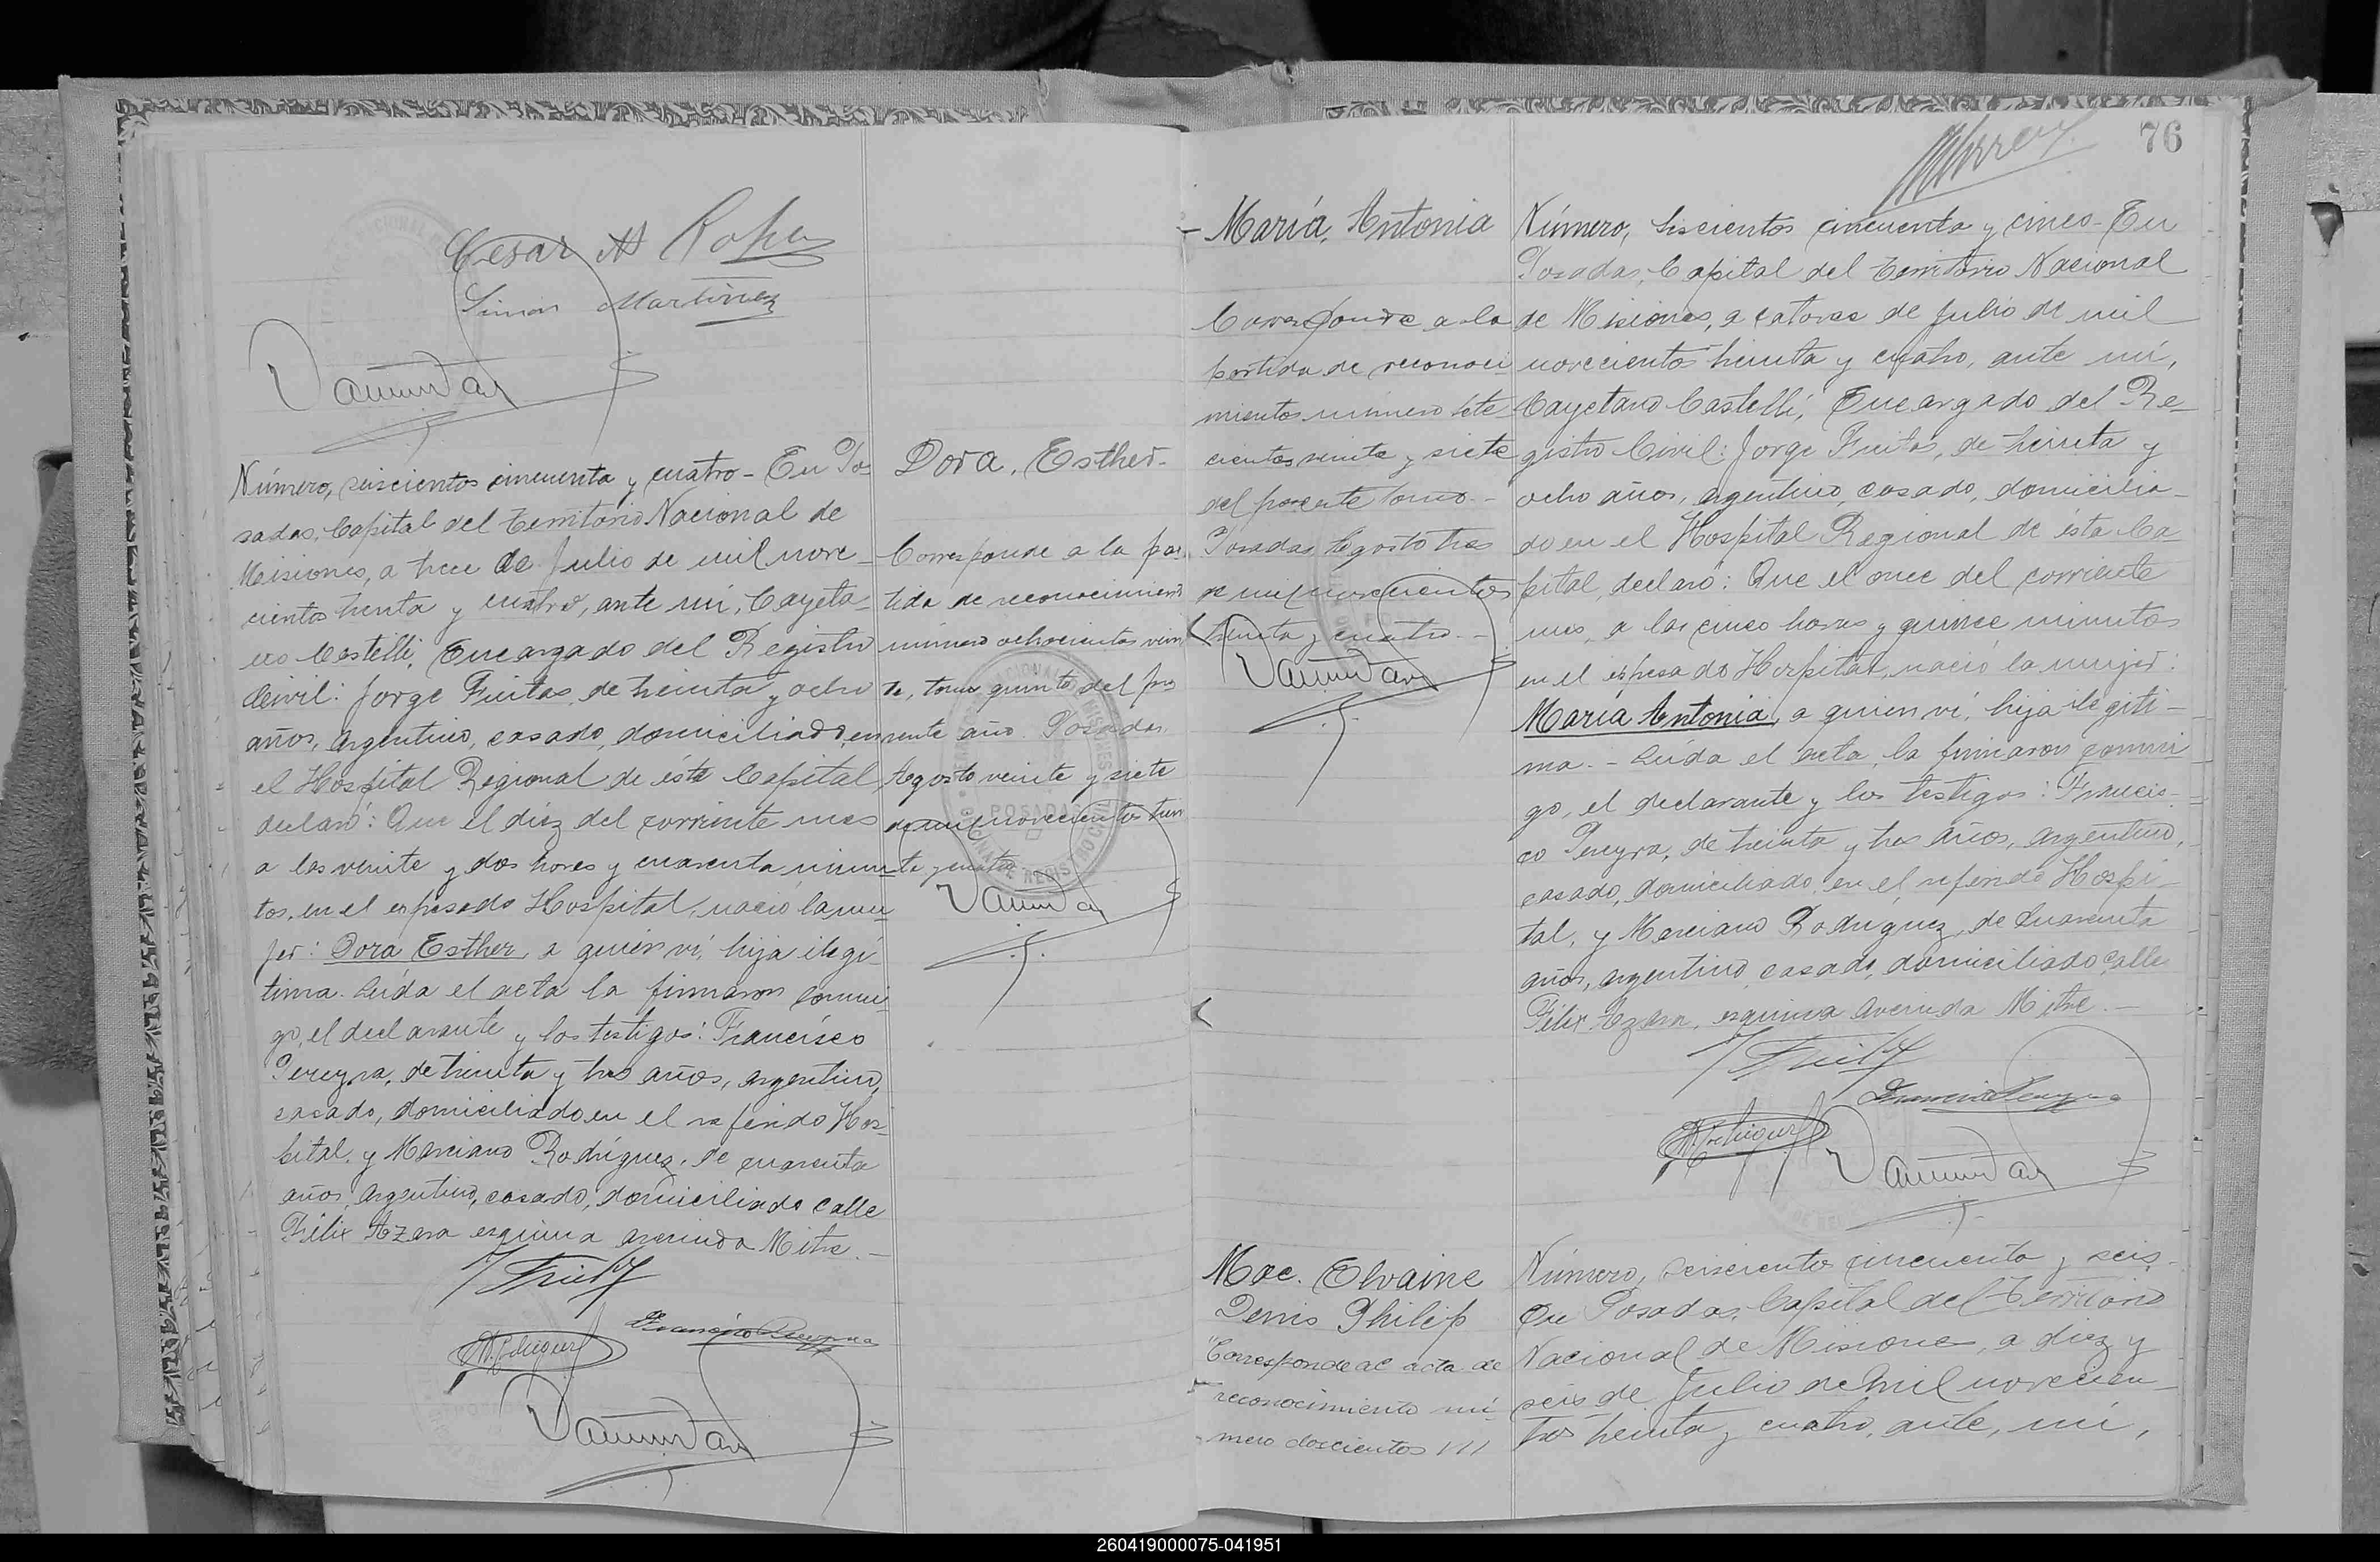 Cesar A Rojas
Simon Martinez
Número, seiscientos cincuenta y cuatro - En Po
sadas, Capital del Territorio Nacional de
Misiones, a trece de Julio de mil nove
cientos treinta y cuatro, ante mí, Cayeta-
no Castelli, Encargado del Registro
Civil: Jorge Freitas, de treinta y ocho
años, argentino, casado, domiciliado, en
el Hospital Regional de ésta Capital,
declaró: Que el diez del corriente mes
a las veinte y dos horas y cuarenta minu-
tos, en el expresado Hospital, nació la mu
jer: Dora Esther, a quién ví, hija ilegí
tima. Leída el acta la firmaron conmi-
go, el declarante y los testigos: Francisco
Pereyra, de treinta y tres años, argentino,
casado, domiciliado en el referido Hos-
pital, y Marciano Rodríguez, de cuarenta
años, argentino, casado, domiciliado calle
Félix Azara esquina avenida Mitre. -
Francisco Pereyra
Dora, Esther.-
Corresponde a la par
tida de reconocimiento
número ochocientos vein
te, tomo quinto del pre
sente año. Posadas,
Agosto veinte y siete
de mil novecientos trein
ta y cuatro
POSADAS
76
- María, Antonia
Corresponde a la
partida de reconoci
mientos número sete
cientos veinte y siete
del presente tomo.-
Posadas Agosto tres
de mil novecientos
treinta y cuatro.-
Número, seiscientos cincuenta y cinco - En
Posadas, Capital del Territorio Nacional
de Misiones, a catorce de Julio de mil
novecientos treinta y cuatro, ante mí,
Cayetano Castelli, Encargado del Re-
gistro Civil: Jorge Freitas, de treinta y
ocho años, argentino, casado, domicilia-
do en el Hospital Regional de ésta Ca
pital, declaró: Que el once del corriente
mes, a las cinco horas y quince minutos
en el expresado Hospital, nació la mujer:
María Antonia, a quien ví, hija ilegíti-
ma. - Leída el acta, la firmaron conmi
go, el declarante y los testigos: Francis-
co Pereyra, de treinta y tres años, argentino,
casado, domiciliado en el referido Hospi-
tal, y Marciano Rodríguez, de cuarenta
años, argentino, casado, domiciliado calle
Félix Azara, esquina avenida Mitre. -
Francisco Pereyra
Mac. Elvaine
Denis Philip
"Corresponde al acta de
reconocimiento nú-
mero doscientos ///
Número, seiscientos cincuenta y seis -
En Posadas, Capital del Territorio
Nacional de Misiones, a diez y
seis de Julio de mil novecien-
tos treinta y cuatro, ante, mí,
260419000075-041951